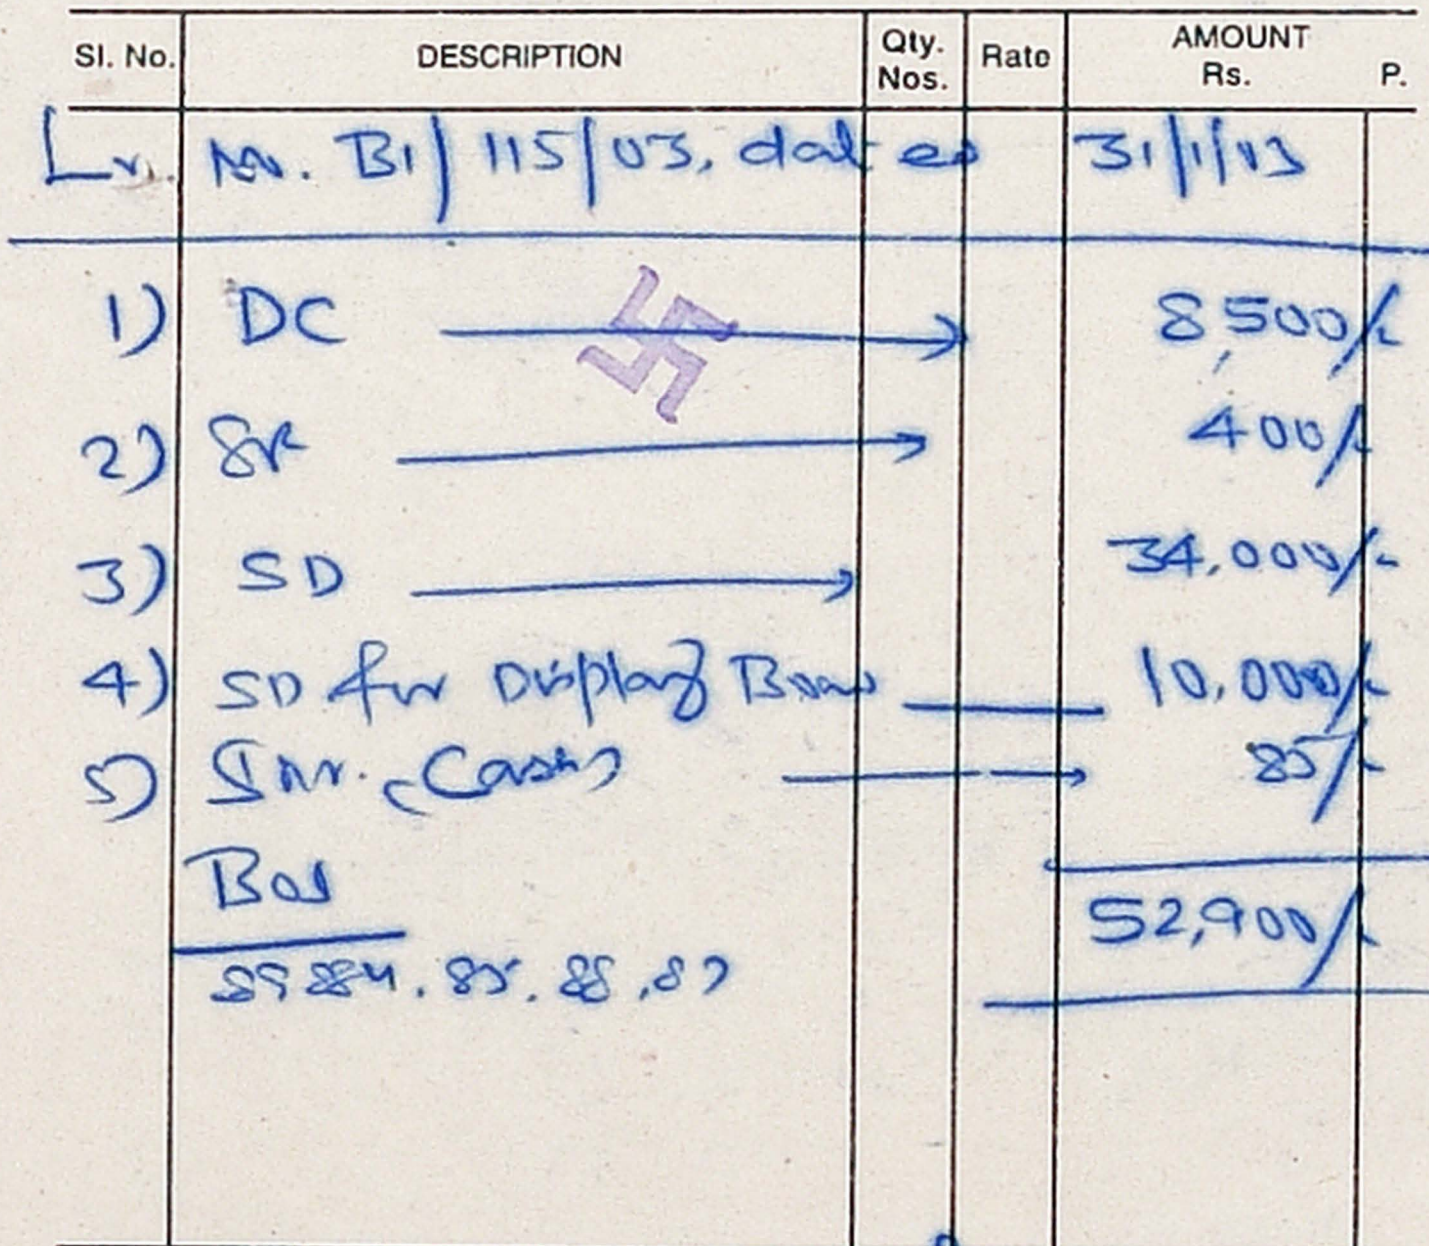 Sl. No. DESCRIPTION Qty. Nos. Rate AMOUNT Rs. P.
Lr. No. B1/115/03, dated 31/1/03
1) DC 8,500/-
2) SR 400/-
3) SD 34,000/-
4) SD for Display 10,000/-
5) (Cash) 85/-
52,900/-
85, 88, 87